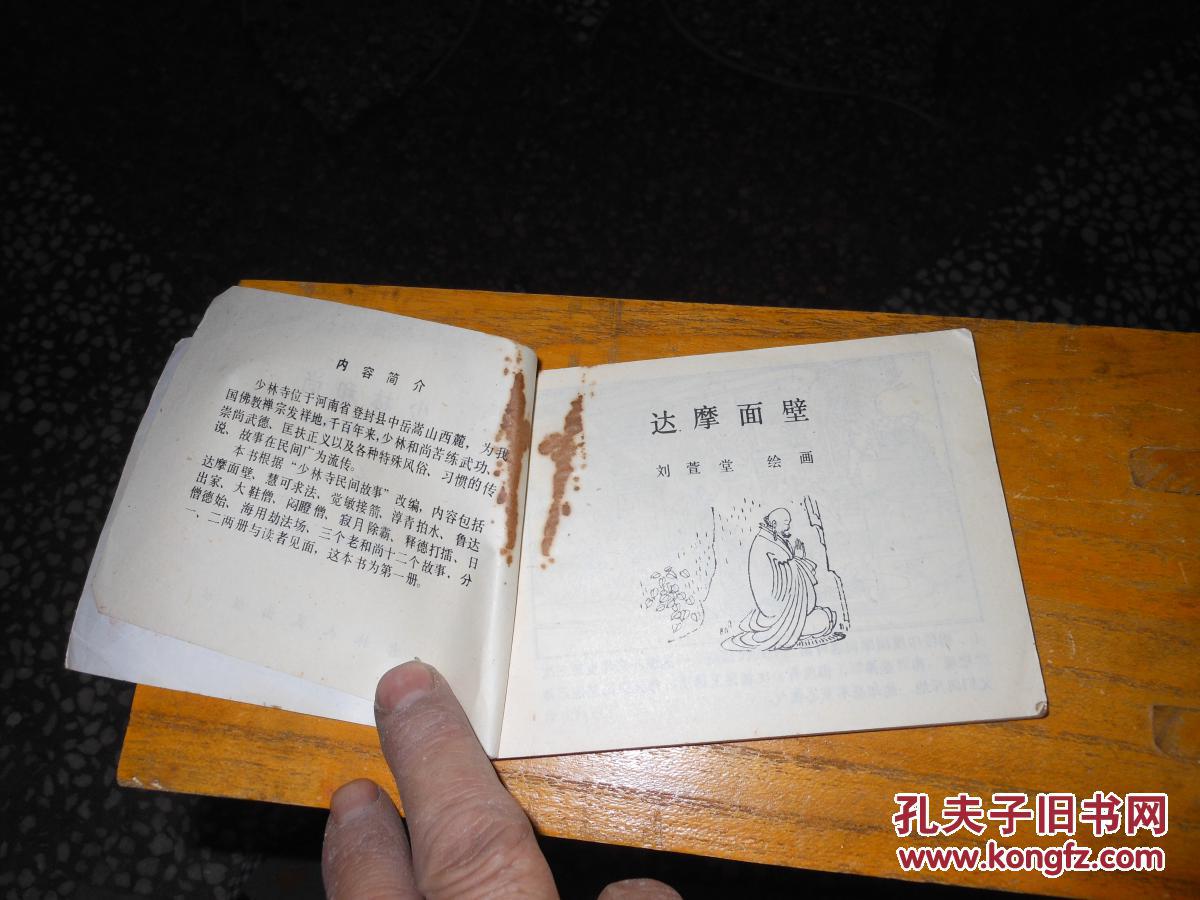 内容简介
少林寺位于河南省登封县中岳嵩山西麓，为我
国佛教禅宗发祥地，千百年来，少林和尚苦练武功、
崇尚武德、匡扶正义以及各种特殊风俗、习惯的传
说、故事在民间广为流传。
本书根据“少林寺民间故事”改编，内容包括
达摩面壁、慧可求法、觉敏接箭、淳青拍水、鲁达
出家、大鞋僧、闷瞪僧、寂月除霸、释德打擂、日
僧德始、海用劫法场、三个老和尚十二个故事，分
一、二两册与读者见面，这本书为第一册。
达摩面壁
刘萱堂 绘画
孔夫子旧书网
www.kongfz.com